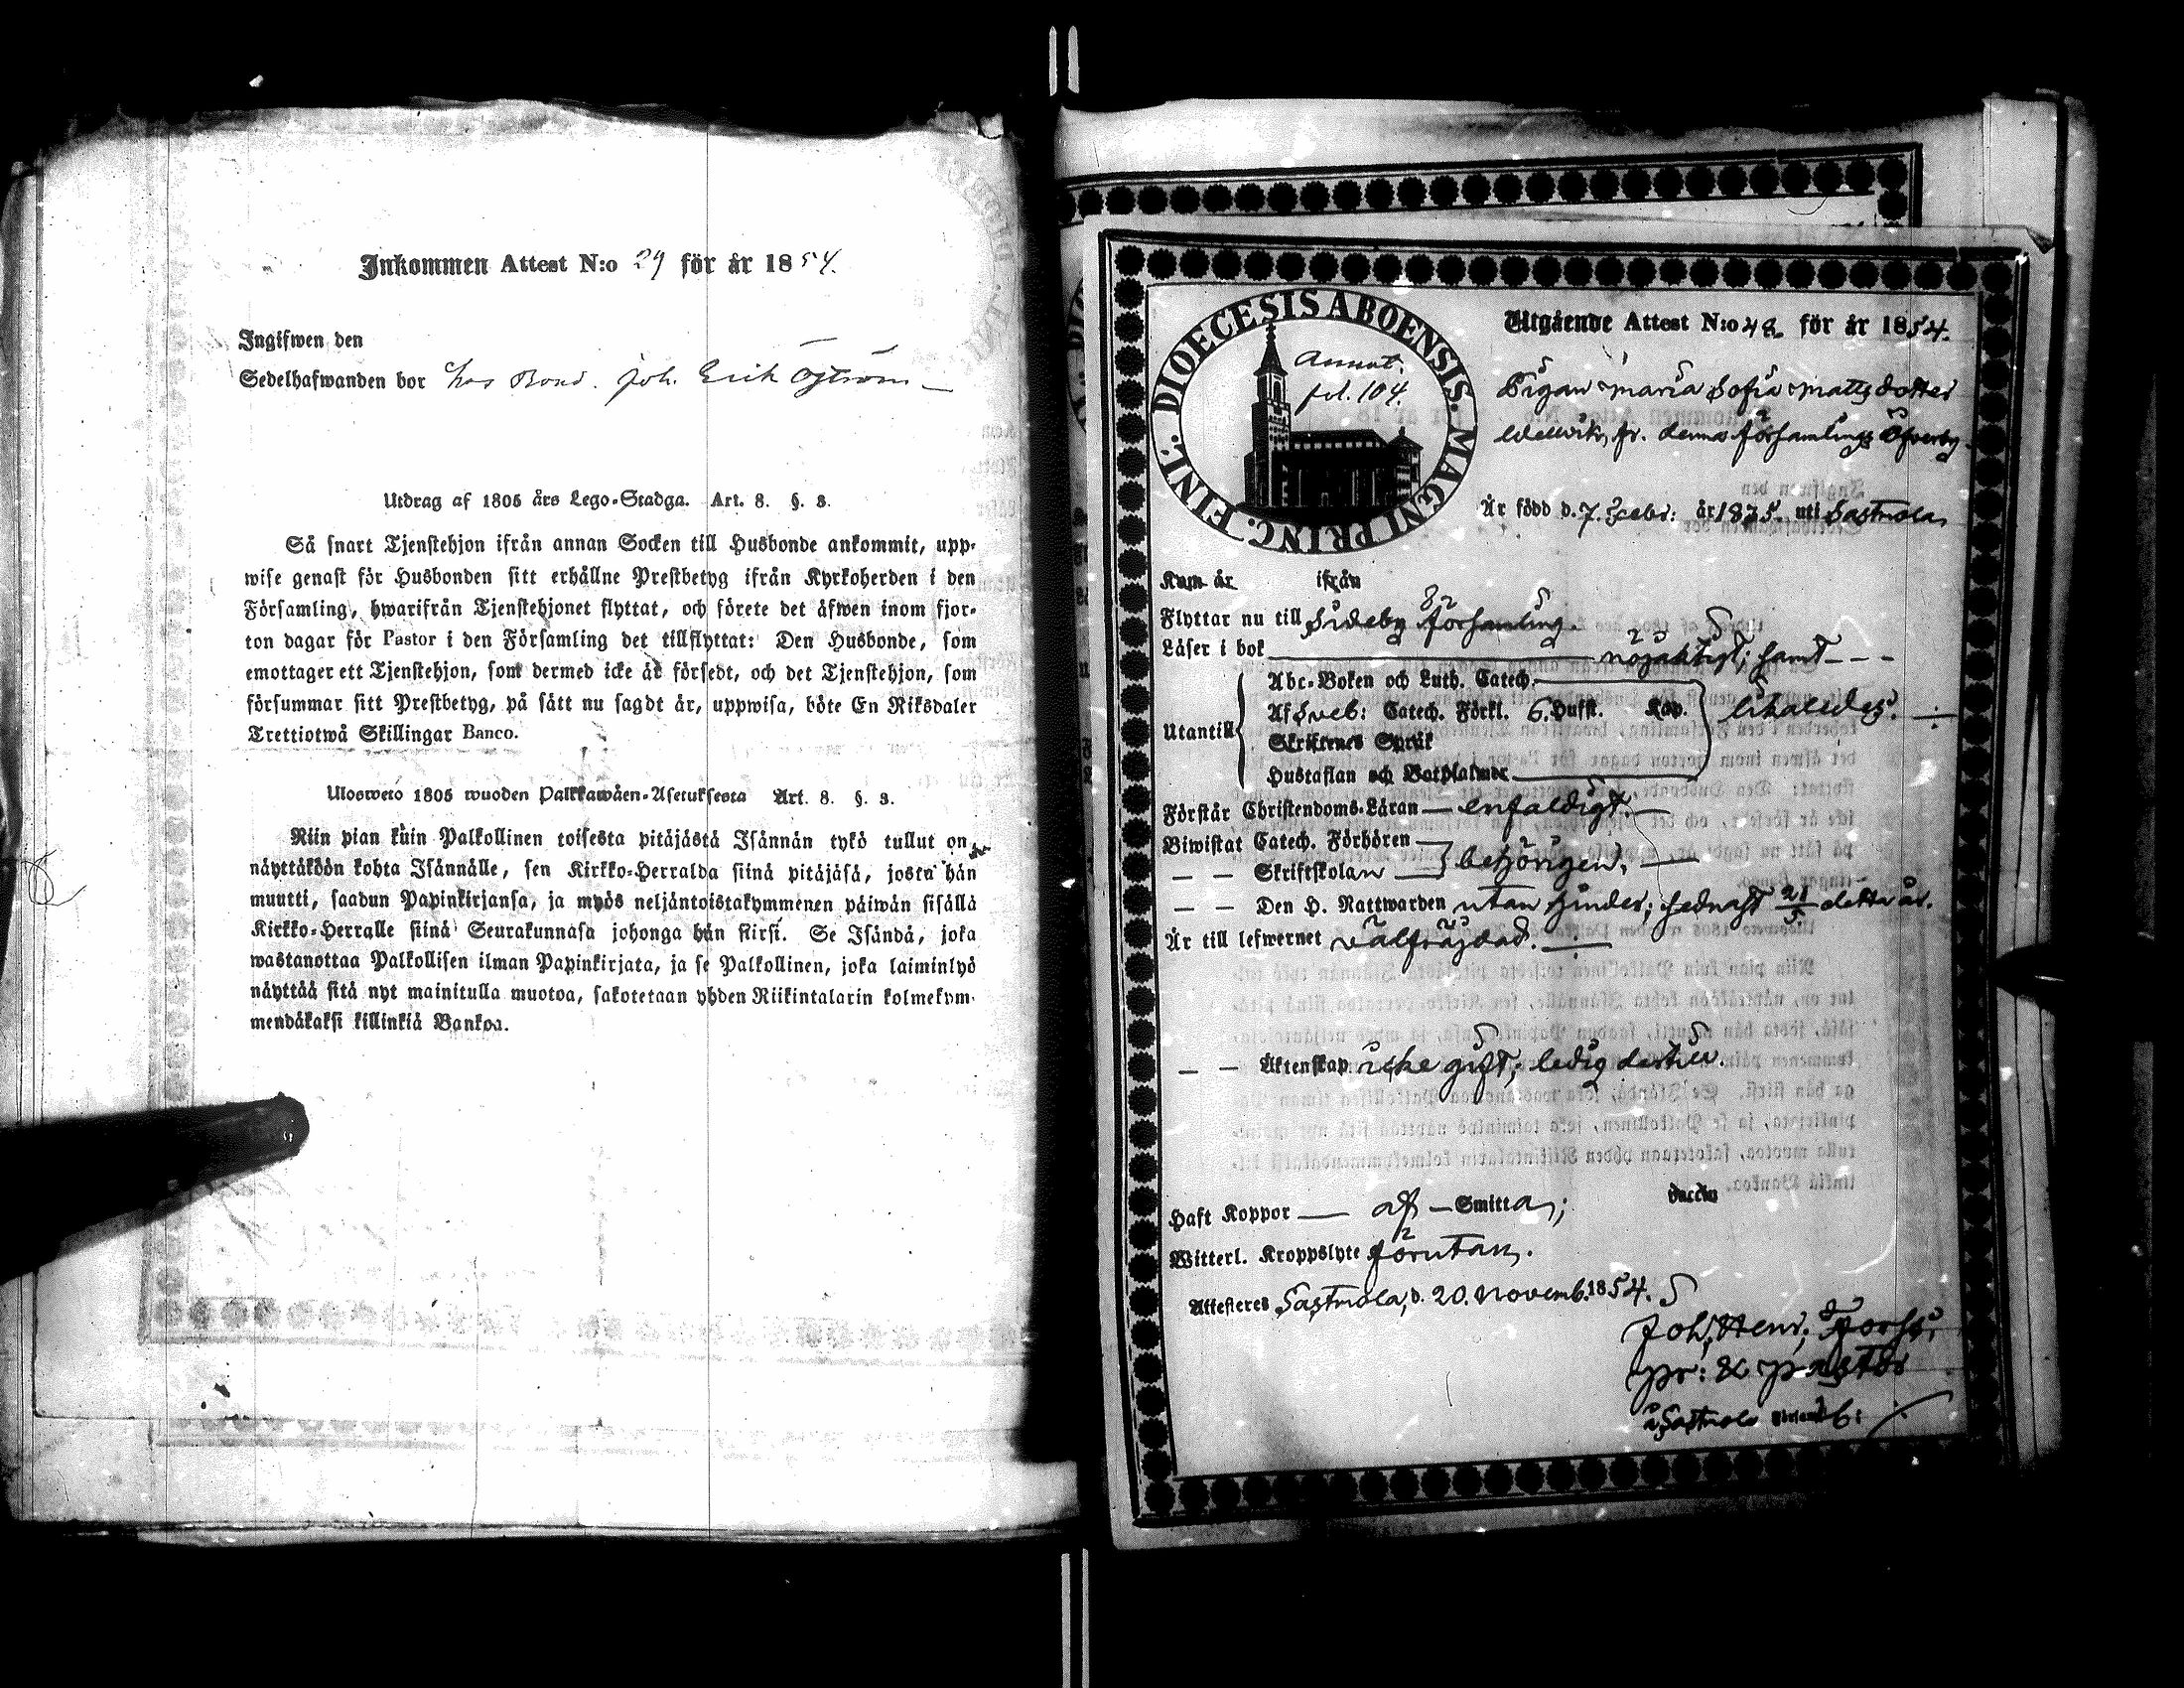 Inkommen Attest N:o 29 för år 1854.
Ingifwen den
Sedelhafwanden bor hos Bond. Joh. Erik Öström
Utdrag af 1805 års Lego-Stadga. Art. 8. §. 3.
Så snart Tjenstehjon ifrån annan Socken till Husbonde ankommit, upp-
wise genast för Husbonden sitt erhållne Prestbetyg ifrån Kyrkoherden i den
Församling, hwarifrån Tjenstehjonet flyttat, och förete det äfwen inom fjor-
ton dagar för Pastor i den Församling det tillflyttat: Den Husbonde, som
emottager ett Tjenstehjon, som dermed icke är försedt, och det Tjenstehjon, som
försummar sitt Prestbetyg, på sätt nu sagdt är, uppwisa, böte En Riksdaler
Trettiotwå Skillingar Banco.
Uloswetö 1805 wuoden Palkkawäen-Asetuksesta Art. 8. §. 3.
Niin pian kuin Palkollinen toisesta pitäjästä Isännän tykö tullut on,
näyttäköön kohta Isännälle, sen Kirkko-Herralda siinä pitäjäsä, josta hän
muutti, saadun Papinkirjansa, ja myös neljäntoistakymmenen päiwän sisällä
Kirkko-Herralle siinä Seurakunnasa johonga hän siirsi. Se Isändä, joka
wastanottaa Palkollisen ilman Papinkirjata, ja se Palkollinen, joka laiminlyö
näyttää sitä nyt mainitulla muotoa, sakotetaan yhden Riikintalarin kolmekym-
mendäkaksi killinkiä Bankoa.
DIOECESIS ABOENSIS. MAGNI PRINC. FINL.
Annot.
fol. 104.
Utgående Attest N:o 48 för år 1854.
Pigan Maria Sofia Mattsdotter
fr. denna församlings Öfverby
Är född d. 7. Febr: år 1835 uti Sastmola
Kom år ifrån
Flyttar nu till Sideby församling.
Läser i bok nöjaktigt; samt
Abc-Boken och Luth. Catech.
Utantill Af Sveb: Catech. Förkl. 6. Hufst. Kap. likaledes.
Skriftenes Språk
Hustaflan och Botpsalmer
Förstår Christendoms-Läran enfaldigt.
Biwistat Catech. Förhören
— — Skriftskolan behörigen.
— — Den H. Nattwarden utan hinder; sednast 21/5 detta år.
Är till lefwernet välfräjdad.
— — Äktenskap icke gift; ledig dertill.
Haft Koppor af Smitta; vaccin
Witterl. Kroppslyte förutan.
Attesteras Sastmola, d. 20. Novemb. 1854.
Joh. Henr. Forss.
pr: & pastor
i Sastmola